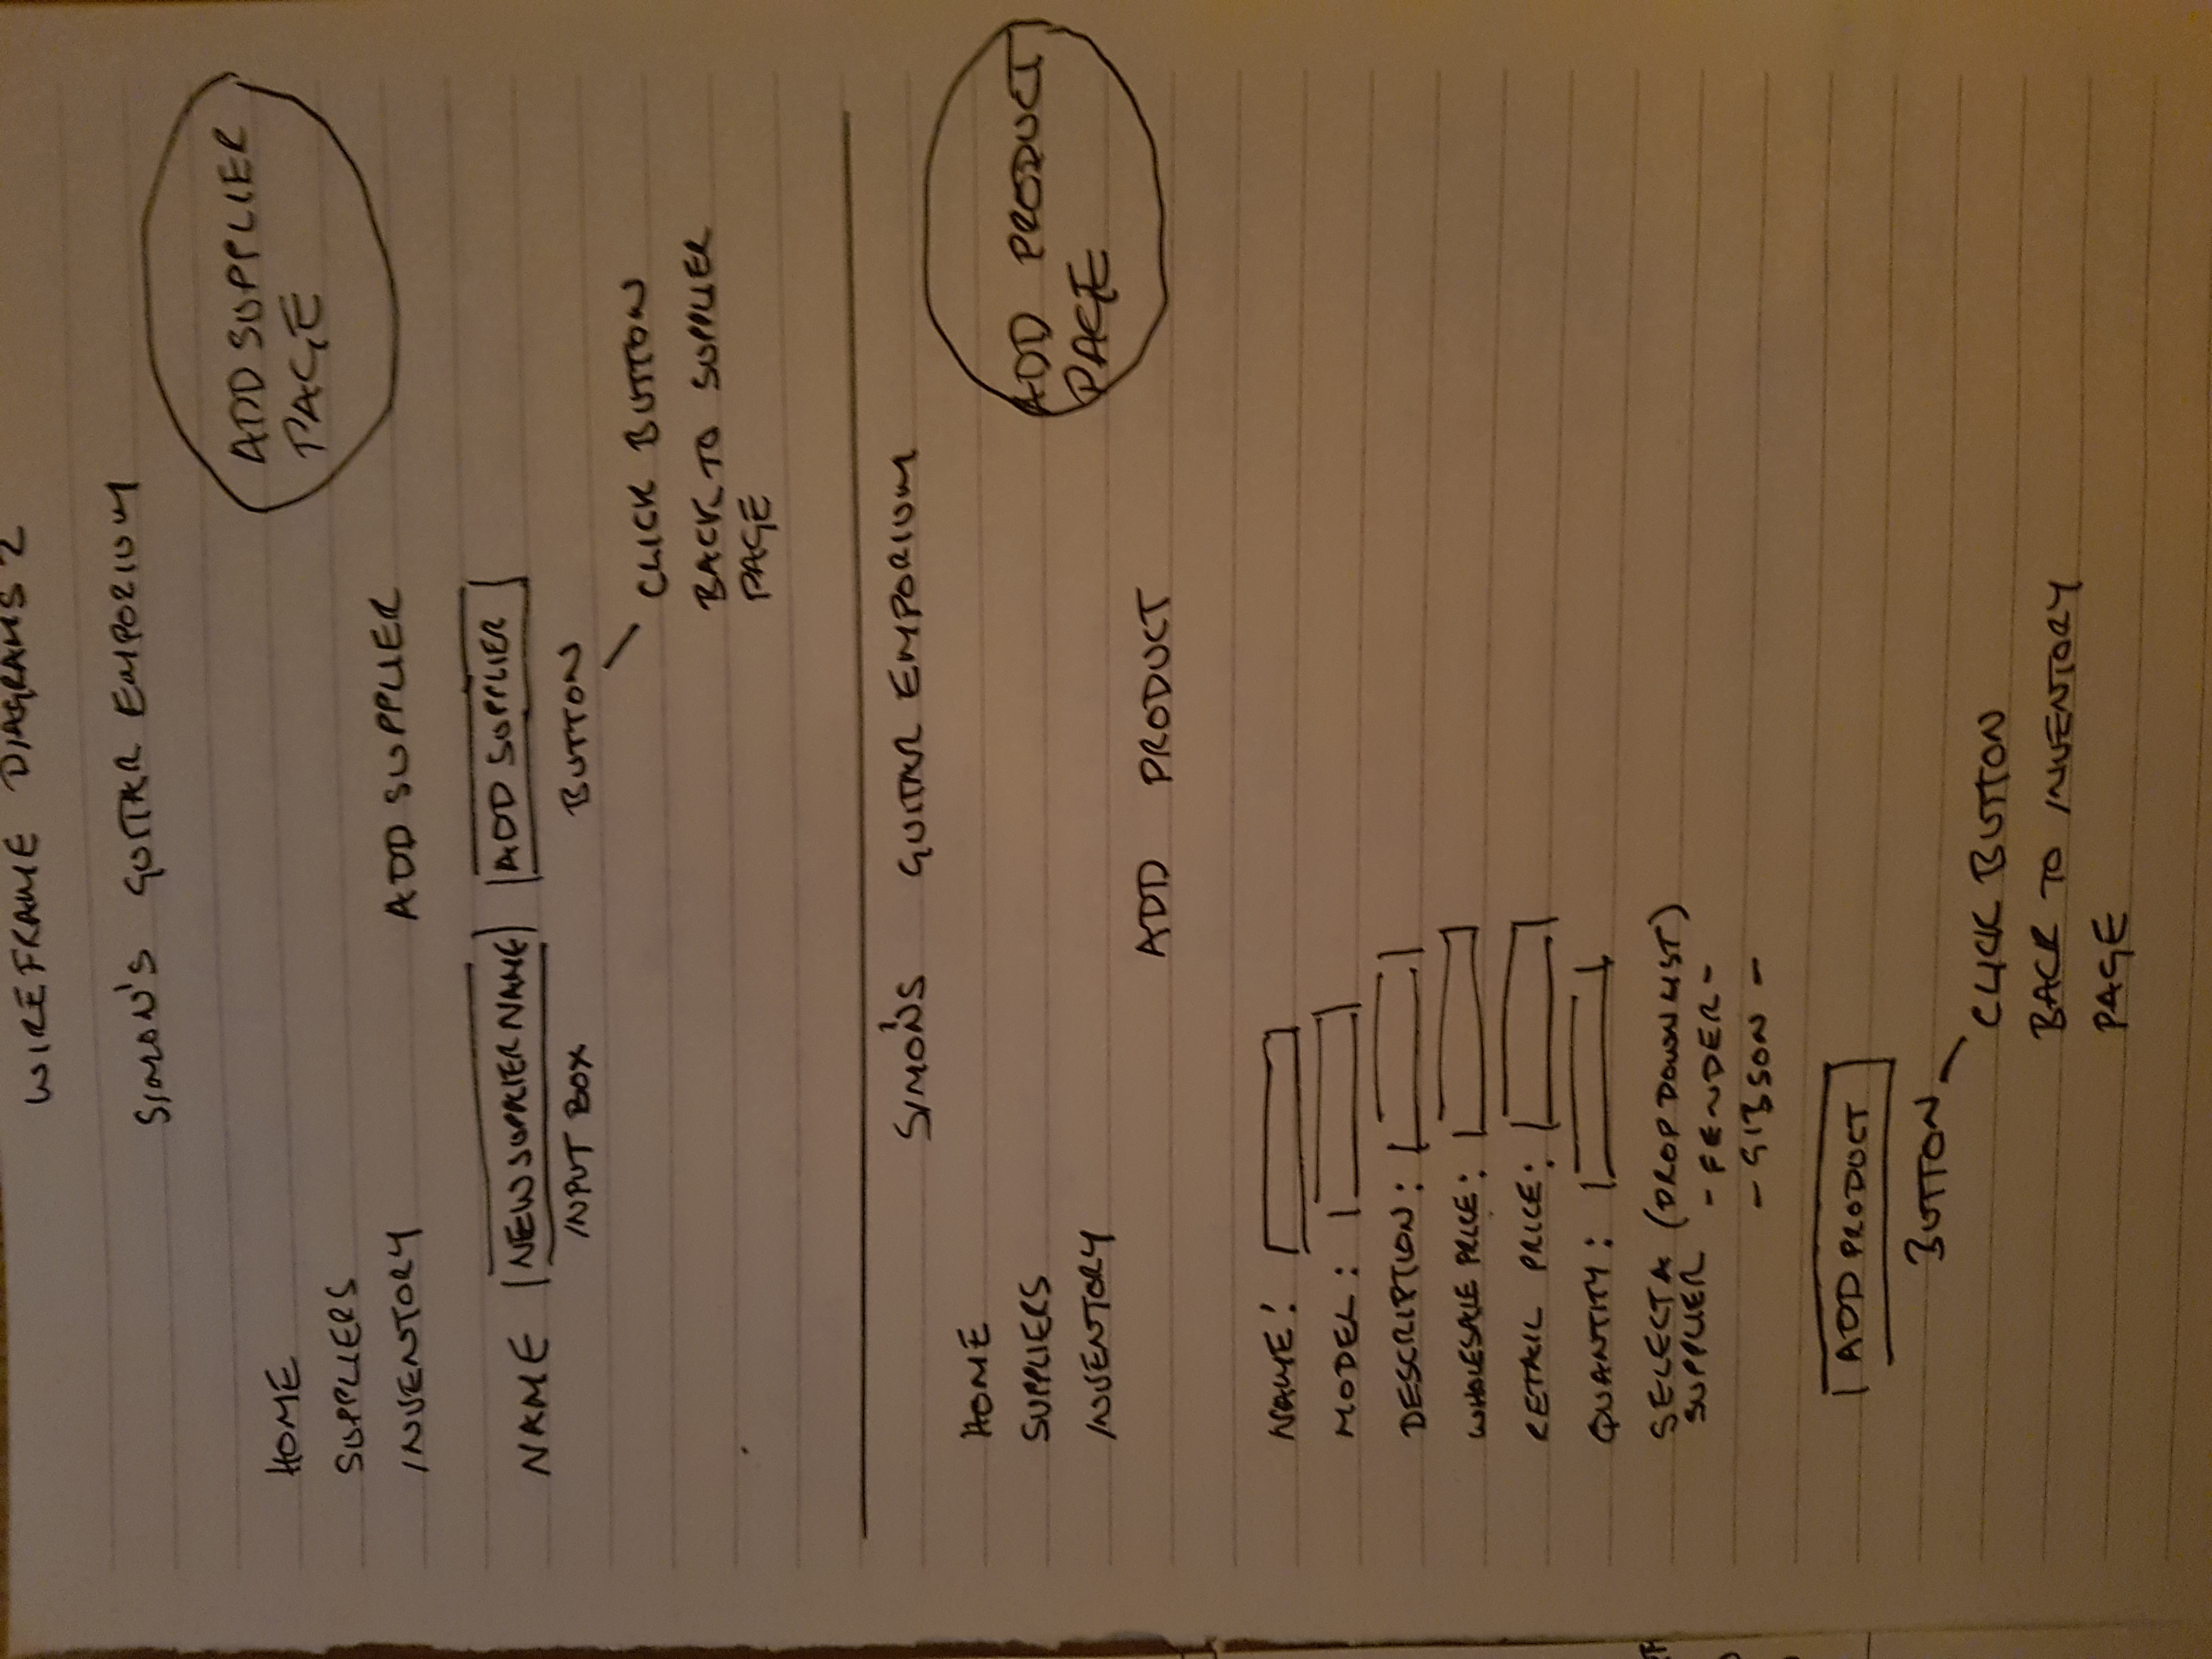 WIREFRAME DIAGRAMS 2
SIMON'S GUITAR EMPORIUM
ADD SUPPLIER
PAGE
HOME
SUPPLIERS
INVENTORY
ADD SUPPLIER
NAME NEW SUPPLIER NAME ADD SUPPLIER
INPUT BOX BUTTON
CLICK BUTTON
BACK TO SUPPLIER
PAGE
SIMON'S GUITAR EMPORIUM
HOME
SUPPLIERS
INVENTORY
ADD PRODUCT
PAGE
ADD PRODUCT
NAME:
MODEL:
DESCRIPTION:
WHOLESALE PRICE:
RETAIL PRICE:
QUANTITY:
SELECT A (DROP DOWN LIST)
SUPPLIER
- FENDER -
- GIBSON -
ADD PRODUCT
BUTTON
CLICK BUTTON
BACK TO INVENTORY
PAGE